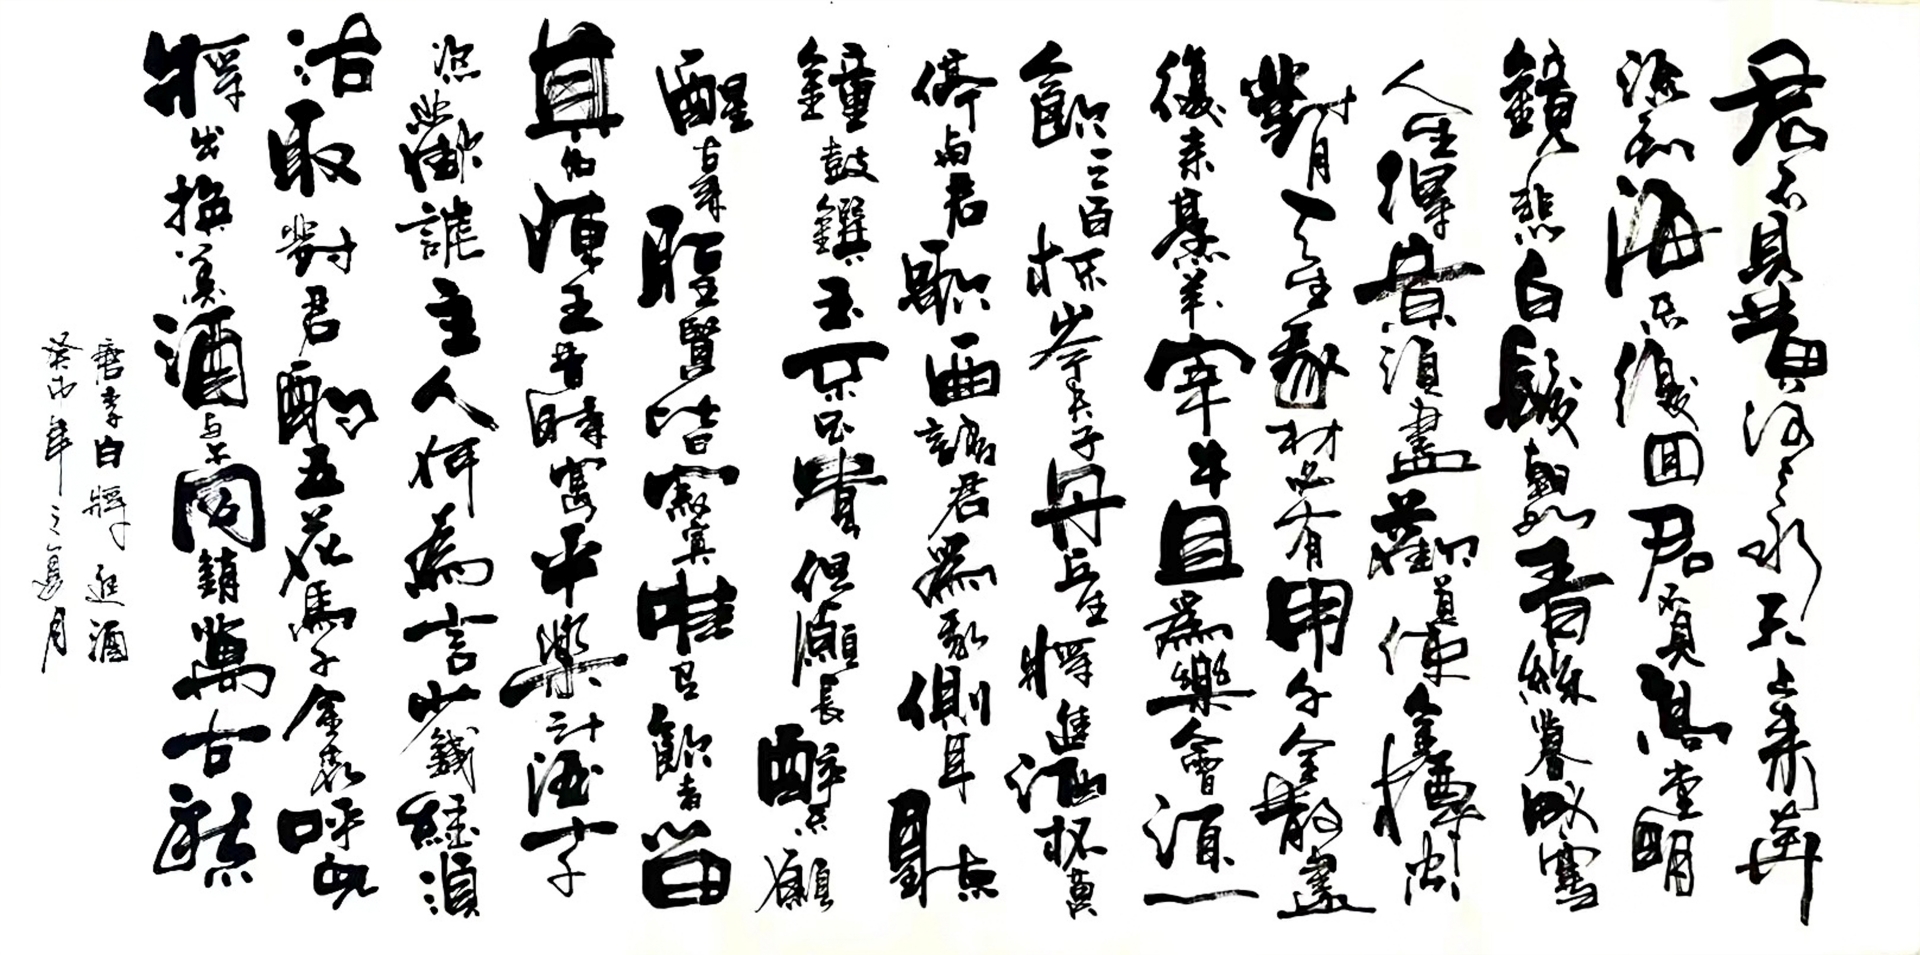 君不見黃河之水天上來奔
流到海不復回君不見高堂明
鏡悲白髮朝如青絲暮成雪
人生得意須盡歡莫使金樽空
對月天生我材必有用千金散盡
復來烹羊宰牛且為樂會須一
飲三百杯岑夫子丹丘生將進酒杯莫
停與君歌一曲請君為我側耳聽
鐘鼓饌玉不足貴但願長醉不願
醒古來聖賢皆寂寞唯有飲者留
其名陳王昔時宴平樂斗酒十千
恣歡謔主人何為言少錢徑須
沽取對君酌五花馬千金裘呼兒
將出換美酒與爾同銷萬古愁
唐李白將進酒
癸卯年之夏月